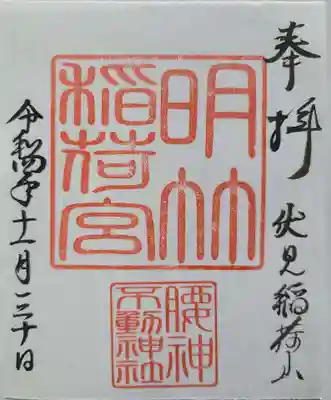 奉拝
伏見稲荷山
明竹
稲荷宮
腰神
不動神社
令和四年十一月三十日